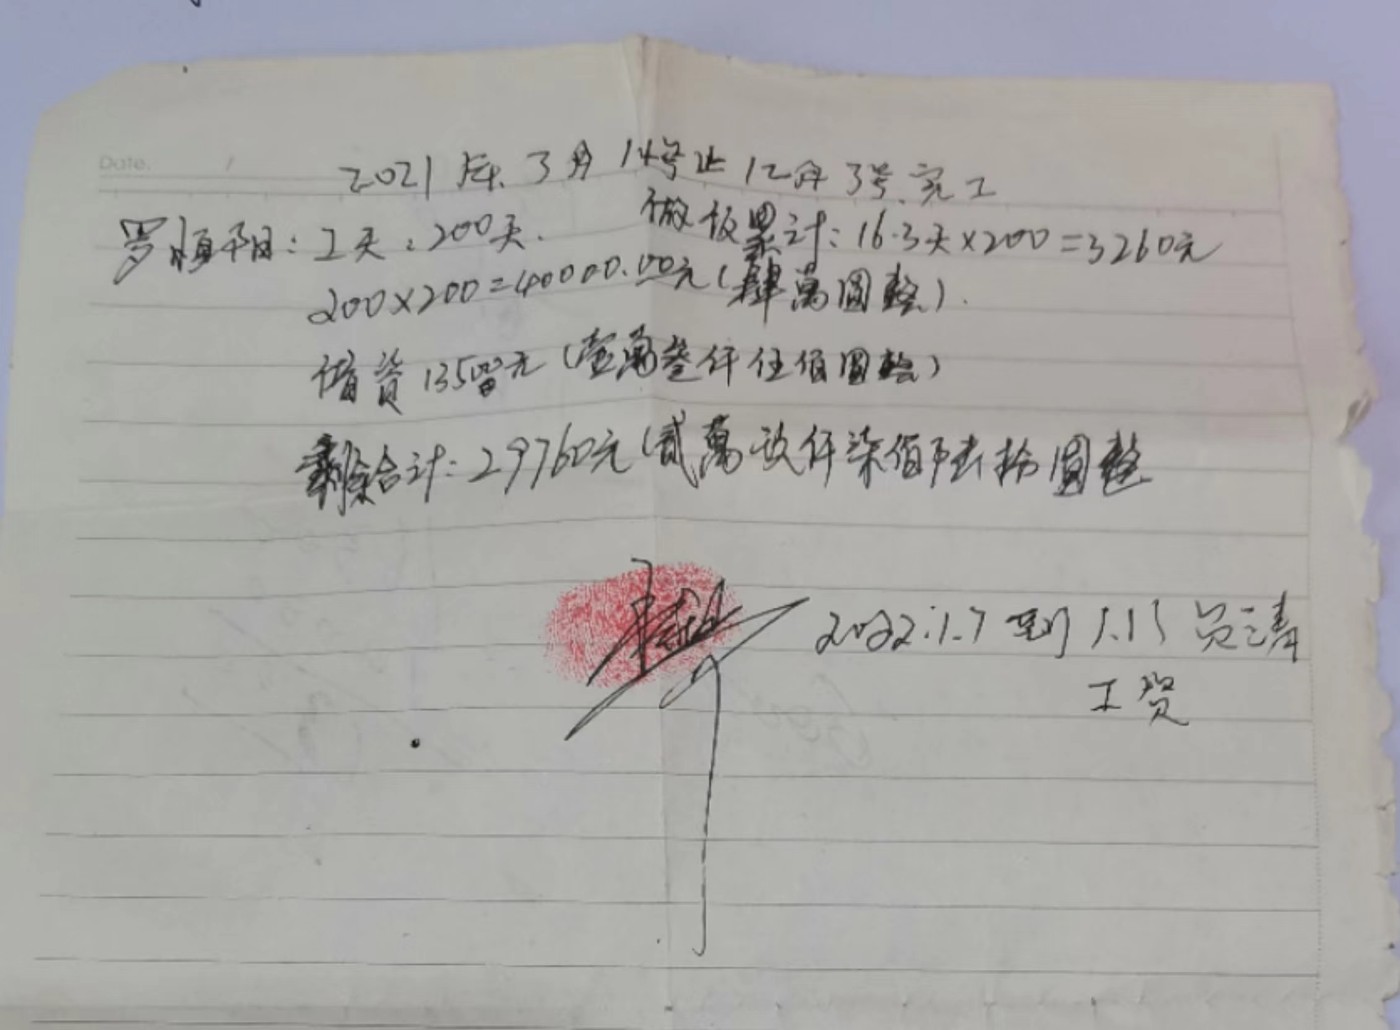 Date.
2021年3月14号止12月3号完工
做饭累计:16.3天×200=3260元
罗顺平日:工天:200天.
200×200=40000.00元(肆萬圆整).
借资13500元(壹萬叁仟伍佰圆整)
剩余合计:29760元(贰萬玖仟柒佰陆拾圆整
2022.1.7到1.15
工资